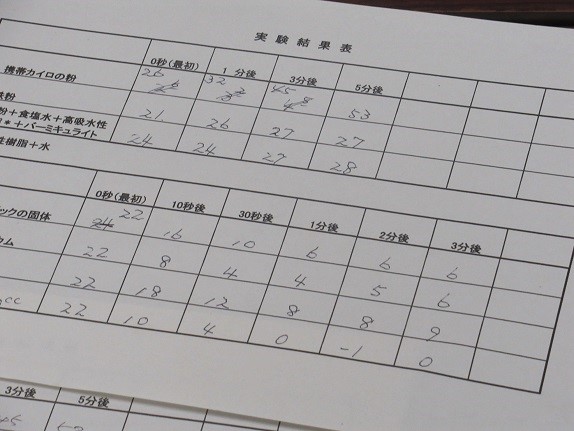 実験結果表
0秒(最初) 1分後 3分後 5分後
携帯カイロの粉 26 32 45 53
鉄粉 21 26 27 27
粉+食塩水+高吸水性
*+バーミキュライト 24 24 27 28
性樹脂+水
0秒(最初) 10秒後 30秒後 1分後 2分後 3分後
ックの固体 24 22 16 10 6 6 6
ウム 22 8 4 4 5 6
22 18 12 8 8 9
cc 22 10 4 0 -1 0
3分後 5分後
45